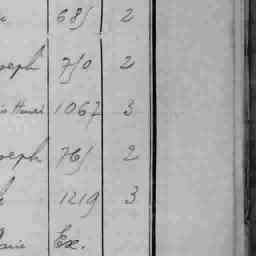 685 2
seph 750 2
Henri 1067 3
seph 765 2
1219 3
Marie Ex.